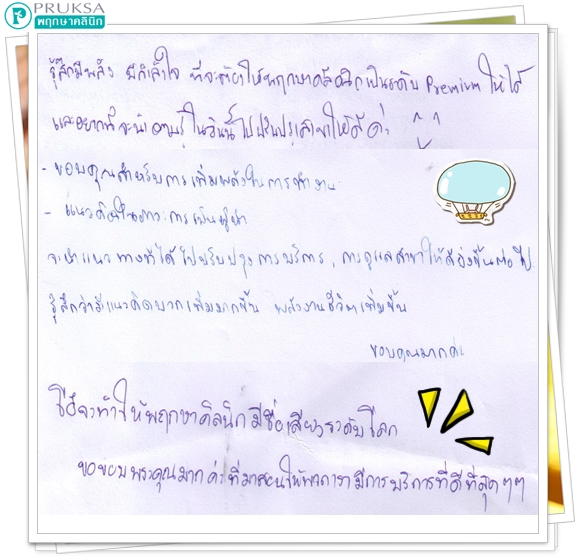 PRUKSA
พฤกษาคลินิก
รู้สึกมีพลัง มีกำลังใจ ที่จะทำให้พฤกษาคลินิกเป็นระดับ Premium ให้ได้
และอยากที่จะนำความรู้ในวันนี้ไปปรับปรุงสาขาให้ดีค่ะ
- ขอบคุณสำหรับการเพิ่มพลังในการทำงาน
- แนวคิดในภาวะการเป็นผู้นำ
จะนำแนวทางที่ได้ไปปรับปรุงการบริการ, การดูแลสาขาให้ดียิ่งขึ้นต่อไป
รู้สึกว่ามีแนวคิดบวกเพิ่มมากขึ้น พลังงานชีวิตเพิ่มขึ้น
ขอบคุณมากค่ะ
จะทำให้พฤกษาคลินิกมีชื่อเสียงระดับโลก
ขอขอบพระคุณมากค่ะที่มาสอนให้พวกเรามีการบริการที่ดีที่สุดๆๆ